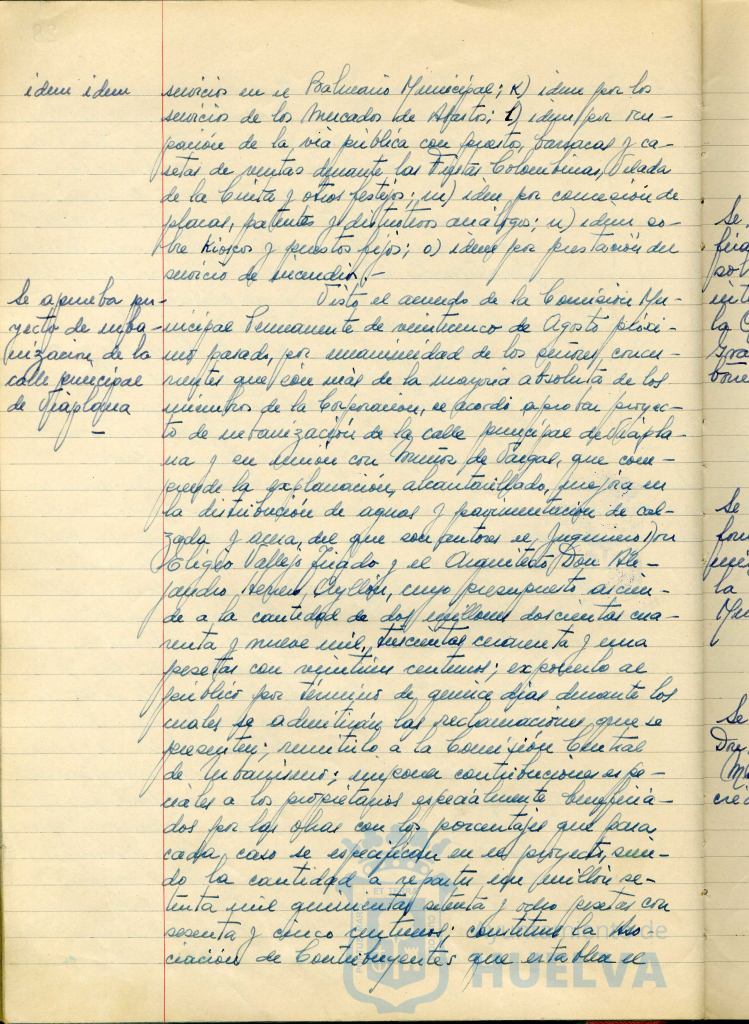 idem idem
servicios en el Balneario Municipal; k) idem por los
servicios de los Mercados de Abastos; l) idem por ocu-
pación de la via pública con puestos, barracas y ca-
setas de ventas durante las Fiestas Colombinas, Velada
de la Cinta y otros festejos; m) idem por concesión de
placas, patentes y distintivos análogos; n) idem so-
bre Kioscos y puestos fijos; o) idem por prestación del
servicio de incendios.-
Se aprueba pro-
yecto de urba-
nización de la
calle principal
de Viaplana
Visto el acuerdo de la Comisión Mu-
nicipal Permanente de veinticinco de Agosto próxi-
mo pasado, por unanimidad de los señores concu-
rrentes que son más de la mayoria absoluta de los
miembros de la Corporación, se acordó aprobar proyec-
to de urbanización de la calle principal de Viapla-
na y en unión con Muñoz de Vargas, que com-
prende la explanación, alcantarillado, mejora en
la distribución de aguas y pavimentación de cal-
zada y acera, del que son autores el Ingeniero Don
Eligio Vallejo Tirado y el Arquitecto Don Ale-
jandro Herrero Ayllón, cuyo presupuesto ascien-
de a la cantidad de dos millones doscientas cua-
renta y nueve mil, trescientas cincuenta y una
pesetas con veintiun centimos; exponerlo al
público por término de quince dias durante los
cuales se admitirán las reclamaciones que se
presenten; remitirlo a la Comisión Central
de Urbanismo; imponer contribuciones espe-
ciales a los propietarios especialmente beneficia-
dos por las obras con los porcentajes que para
cada caso se especifican en el proyecto, sien-
do la cantidad a repartir un millón se-
tenta mil quinientas setenta y ocho pesetas con
sesenta y cinco centimos; constituir la Aso-
ciación de Contribuyentes que establece el
Ayuntamiento de
HUELVA
Se
la
Se
la
Se
Don